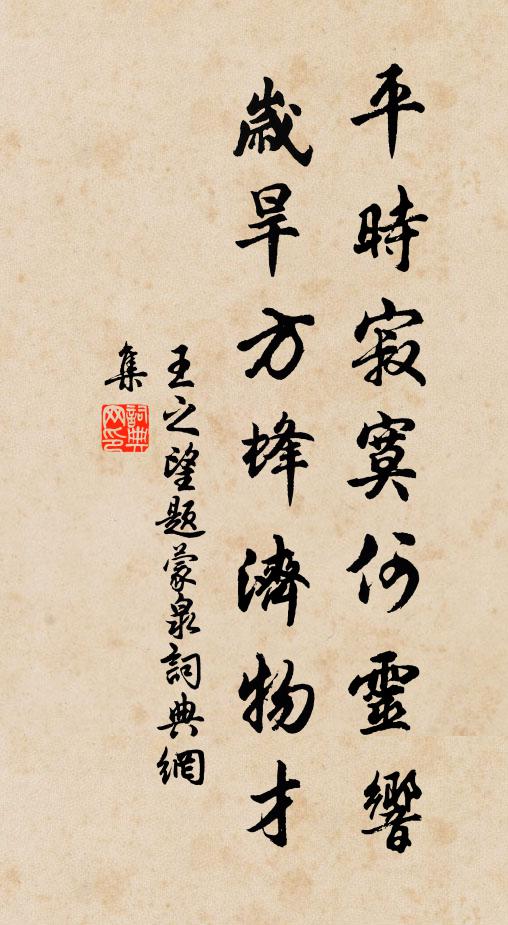 平時寂寞何靈響
歲旱方蜂濟物才
王之望題蒙泉詞典網
集
詞典網印